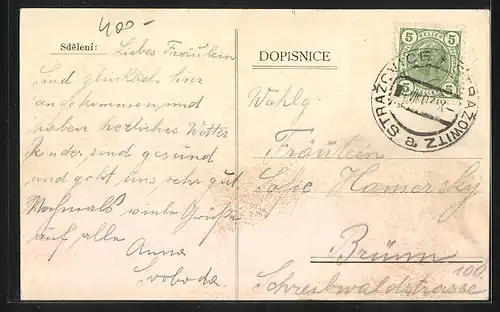 400-
Sdělení:
Liebes Fräulein
Sind glücklich hier
angekommen und
haben herrliches Wetter
Kinder sind gesund
und geht uns sehr gut
Nochmals viele Grüße
auf alle
Anna
Svoboda
DOPISNICE
5 HELLER 5
STRAŽOVICE STRAŽOWITZ a
Wohlg.
Fräulein
Sofie Hamerský
Brünn
100
Schreibwaldstrasse